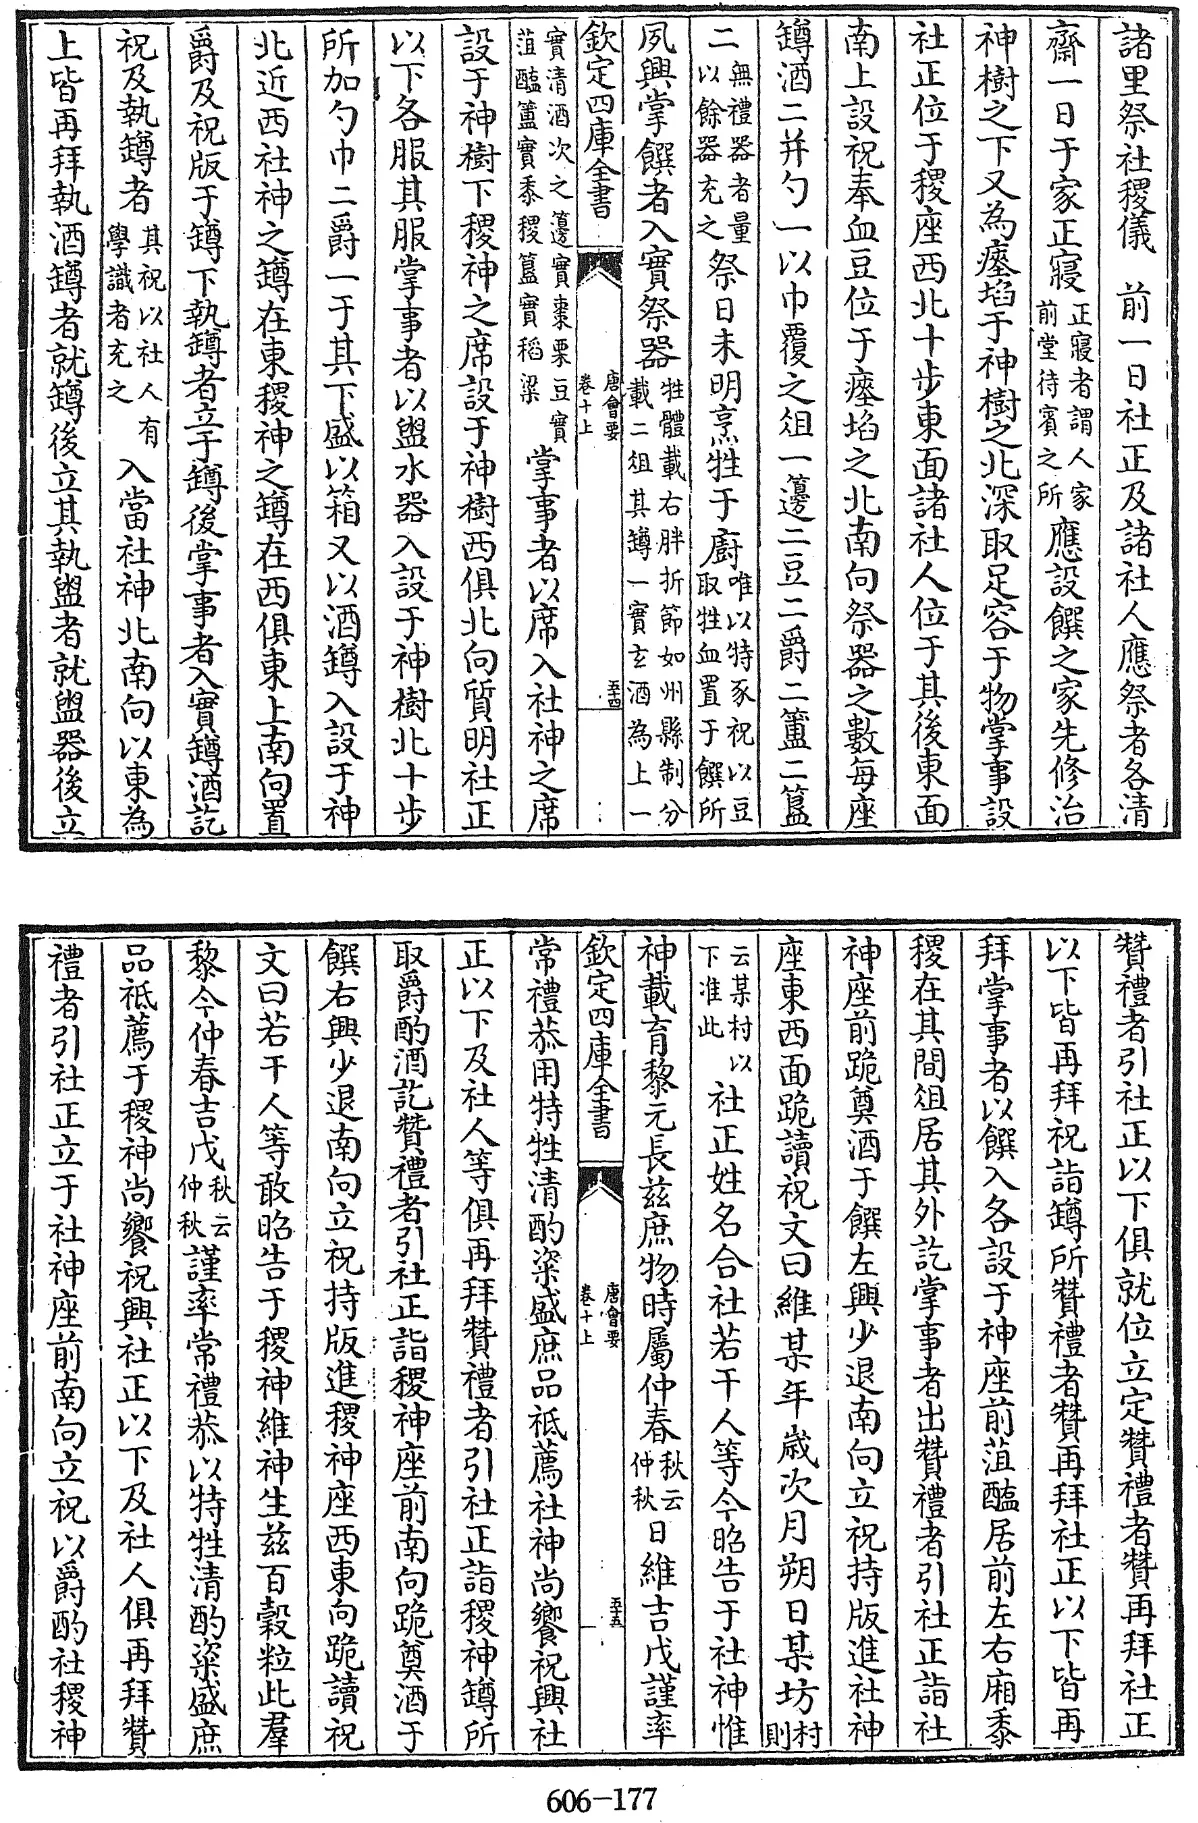 諸里祭社稷儀　前一日社正及諸社人應祭者各清
齋一日于家正寢正寢者謂人家前堂待賓之所應設饌之家先修治
神樹之下又為瘞埳于神樹之北深取足容于物掌事設
社正位于稷座西北十步東面諸社人位于其後東面
南上設祝奉血豆位于瘞埳之北南向祭器之數每座
罇酒二并勺一以巾覆之俎一籩二豆二爵二簠二簋
二無禮器者量以餘器充之祭日未明烹牲于廚唯以特豕祝以豆取牲血置于饌所
夙興掌饌者入實祭器牲體載右胖折節如州縣制分載二俎其罇一實玄酒為上一
欽定四庫全書
唐會要
卷十上
五十四
實清酒次之籩實棗栗豆實菹醢簠實黍稷簋實稻粱掌事者以席入社神之席
設于神樹下稷神之席設于神樹西俱北向質明社正
以下各服其服掌事者以盥水器入設于神樹北十步
所加勺巾二爵一于其下盛以箱又以酒罇入設于神
北近西社神之罇在東稷神之罇在西俱東上南向置
爵及祝版于罇下執罇者立于罇後掌事者入實罇酒訖
祝及執罇者其祝以社人有學識者充之入當社神北南向以東為
上皆再拜執酒罇者就罇後立其執盥者就盥器後立
贊禮者引社正以下俱就位立定贊禮者贊再拜社正
以下皆再拜祝詣罇所贊禮者贊再拜社正以下皆再
拜掌事者以饌入各設于神座前菹醢居前左右廂黍
稷在其間俎居其外訖掌事者出贊禮者引社正詣社
神座前跪奠酒于饌左興少退南向立祝持版進社神
座東西面跪讀祝文曰維某年歲次月朔日某坊村則
云某村以下准此社正姓名合社若干人等今昭告于社神惟
神載育黎元長茲庶物時屬仲春秋云仲秋日維吉戊謹率
欽定四庫全書
唐會要
卷十上
五十五
常禮恭用特牲清酌粢盛庶品祗薦社神尚饗祝興社
正以下及社人等俱再拜贊禮者引社正詣稷神罇所
取爵酌酒訖贊禮者引社正詣稷神座前南向跪奠酒于
饌右興少退南向立祝持版進稷神座西東向跪讀祝
文曰若干人等敢昭告于稷神維神生茲百穀粒此羣
黎今仲春吉戊秋云仲秋謹率常禮恭以特牲清酌粢盛庶
品祗薦于稷神尚饗祝興社正以下及社人俱再拜贊
禮者引社正立于社神座前南向立祝以爵酌社稷神
606-177